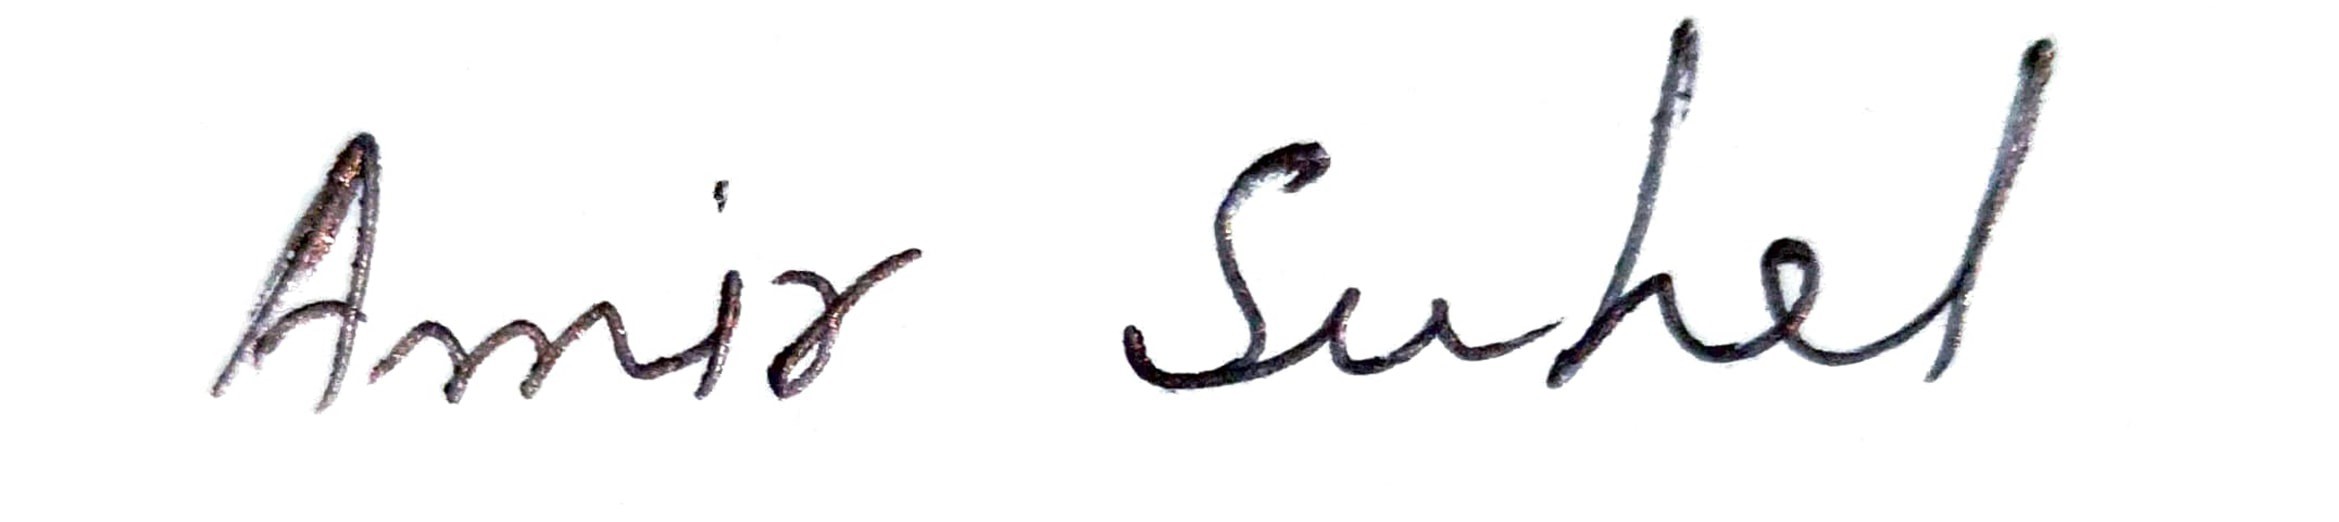 Amir Suhel